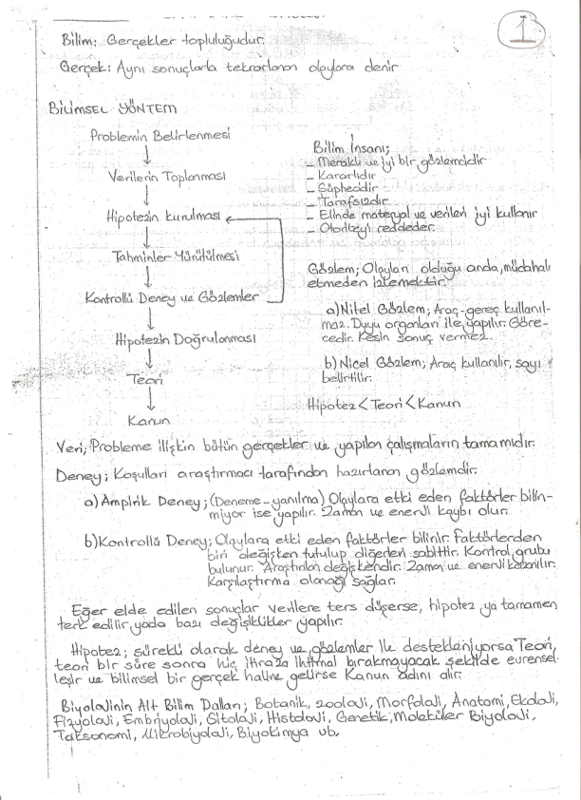 1
Bilim: Gerçekler topluluğudur.
Gerçek: Aynı sonuçlarla tekrarlanan olaylara denir
BİLİMSEL YÖNTEM
Problemin Belirlenmesi
Verilerin Toplanması
Hipotezin kurulması
Tahminler Yürütülmesi
Kontrollü Deney ve Gözlemler
Hipotezin Doğrulanması
Teori
Kanun
Bilim İnsanı;
- Meraklı ve iyi bir gözlemcidir
- Kararlıdır
- Şüphecidir
- Tarafsızdır
- Elinde materyal ve verileri iyi kullanır
- Otoriteyi reddeder.
Gözlem; Olayları olduğu anda, müdahale
etmeden izlemektir.
a) Nitel Gözlem; Araç-gereç kullanıl-
maz. Duyu organları ile yapılır. Göre-
cedir. Kesin sonuç vermez.
b) Nicel Gözlem; Araç kullanılır, sayı
belirtilir.
Hipotez < Teori < Kanun
Veri; Probleme ilişkin bütün gerçekler ve yapılan çalışmaların tamamıdır.
Deney; Koşulları araştırmacı tarafından hazırlanan gözlemdir.
a) Ampirik Deney; (Deneme-yanılma) Olaylara etki eden faktörler bilin-
miyor ise yapılır. Zaman ve enerji kaybı olur.
b) Kontrollü Deney; Olaylara etki eden faktörler bilinir. Faktörlerden
biri değişken tutulup diğerleri sabittir. Kontrol grubu
bulunur. Araştırılan değişkendir. Zaman ve enerji kazanılır.
Karşılaştırma olanağı sağlar.
Eğer elde edilen sonuçlar verilere ters düşerse, hipotez ya tamamen
terk edilir, yada bazı değişiklikler yapılır.
Hipotez; sürekli olarak deney ve gözlemler ile destekleniyorsa Teori,
teori bir süre sonra hiç itiraza ihtimal bırakmayacak şekilde evrensel-
leşir ve bilimsel bir gerçek haline gelirse Kanun adını alır.
Biyolojinin Alt Bilim Dalları; Botanik, Zooloji, Morfoloji, Anatomi, Ekoloji,
Fizyoloji, Embriyoloji, Sitoloji, Histoloji, Genetik, Moleküler Biyoloji,
Taksonomi, Mikrobiyoloji, Biyokimya vb.